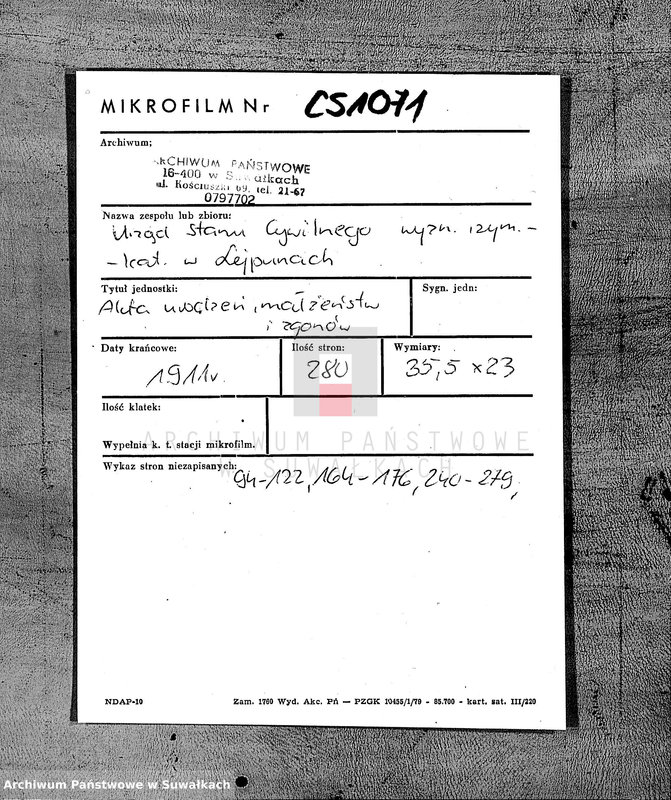 MIKROFILM Nr CS1071
Archiwum;
ARCHIWUM PAŃSTWOWE
16-400 w Suwałkach
ul. Kościuszki 69, tel. 21-67
0797702
Nazwa zespołu lub zbioru:
Urząd Stanu Cywilnego wyzn. rzym.-
-kat. w Lejpunach
Tytuł jednostki: Sygn. jedn:
Akta urodzeń, małżeństw
i zgonów
Daty krańcowe: Ilość stron: Wymiary:
1911r. 280 35,5 x 23
Ilość klatek:
Wypełnia k. t. stacji mikrofilm.
ARCHIWUM PAŃSTWOWE
W SUWAŁKACH
Wykaz stron niezapisanych:
94-122, 164-176, 240-279,
NDAP-10 Zam. 1760 Wyd. Akc. Pń — PZGK 10455/1/79 - 85.700 - kart. sat. III/220
Archiwum Państwowe w Suwałkach